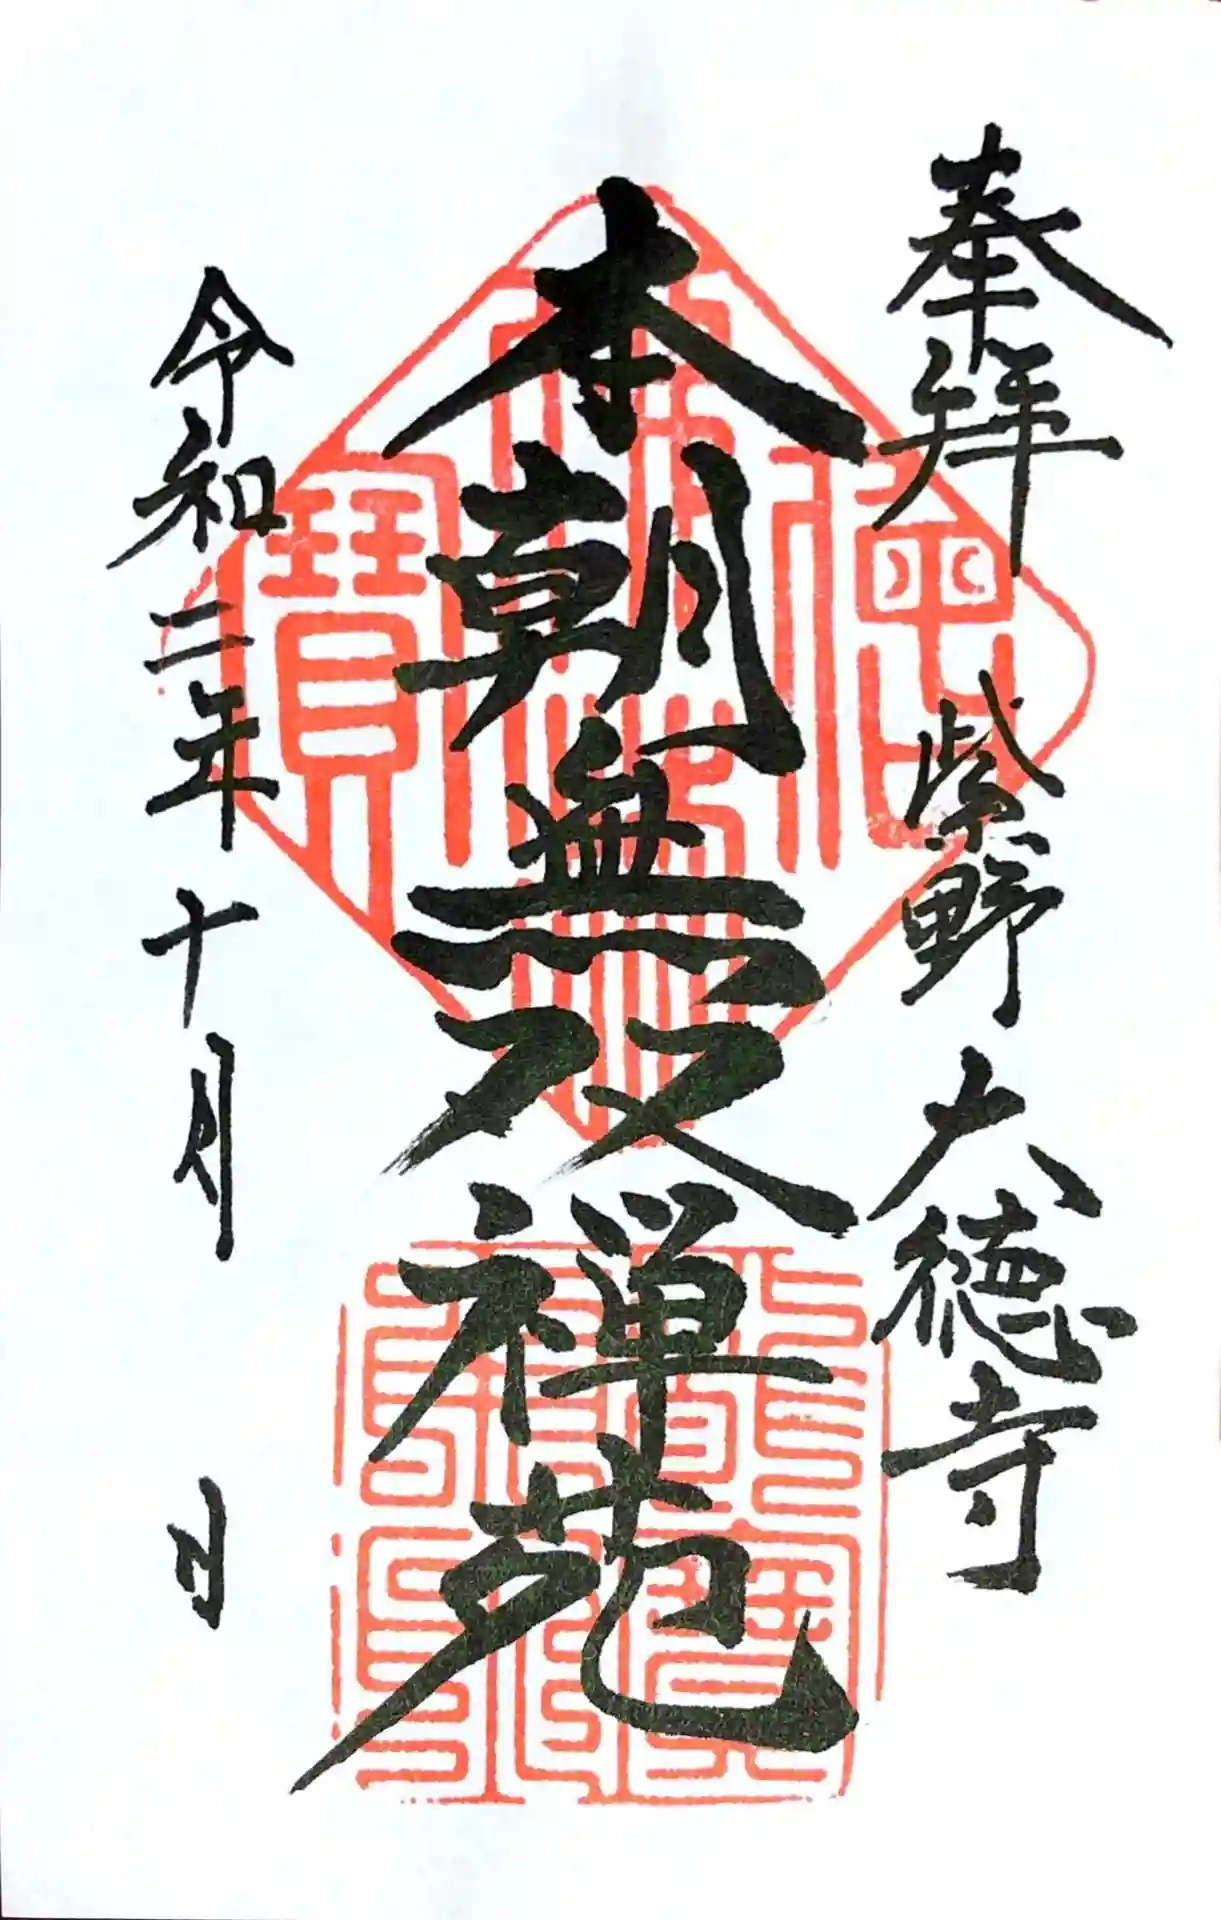 奉拝 紫野 大徳寺
本朝無双禅苑
令和二年十月 日